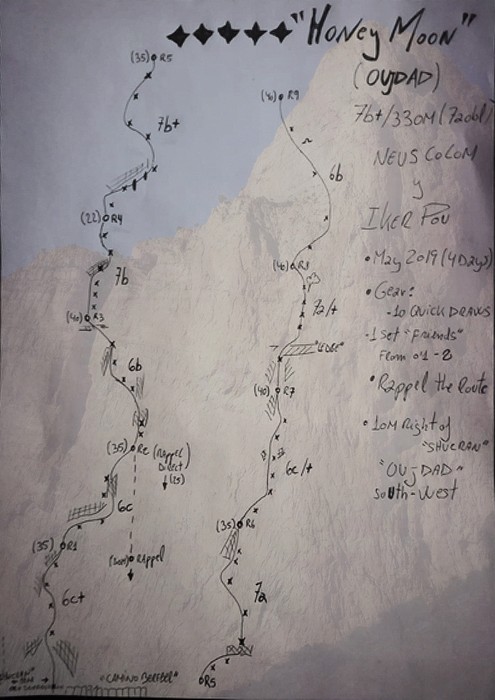 "Honey Moon"
(OUJDAD)
7b+/330M (7a obl)
NEUS COLOM
y
IKER POU
• May 2019 (4 Days)
• Gear:
-10 QUICKDRAWS
-1 Set "friends"
From 0'1 - 2
• Rappel the route
• 10M Right of
"SHUCRAN"
"OUJDAD"
South-West
(35) R5
7b+
(22) R4
7b
(40) R3
6b
(35) Re (Rappel
Direct
(25)
6c
Rappel
(35) R1
6c+
"CAMINO BEREBEL"
(40) R9
6b
(40) R8
7a/+
"LEDGE"
(40) R7
6c/+
(35) R6
7a
R5